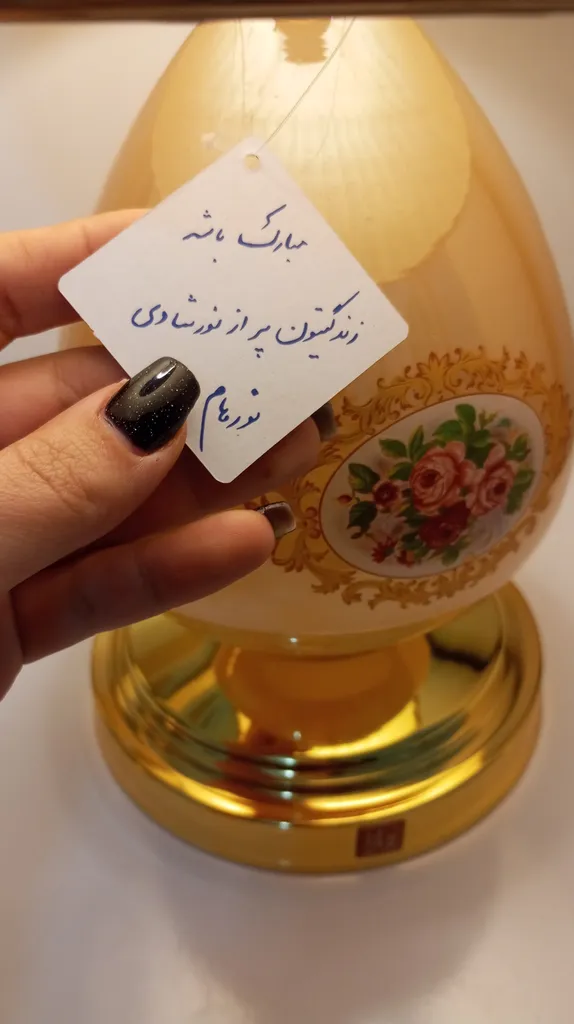 مبارک باشه
زندگیتون پر از نور شادی
نورهام